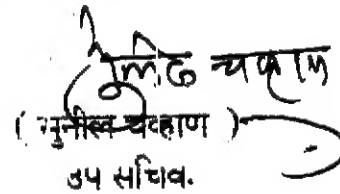 सुनिल चव्हाण
( सुनील चव्हाण )
उप सचिव.